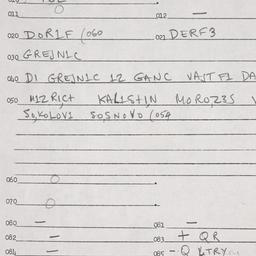 011 O 012 —
020 DORIF (060 021 DERF3
030 GREJNIC
040 DI GREJNIC 12 GANC VAJT FI DA
050 MIZRICT KALISTIN MOROZ3S
SOKOLOVI SOSNOVO (054
060 O
070 O
080 — 081 —
082 — 083 + QR
084 — 085 - Q